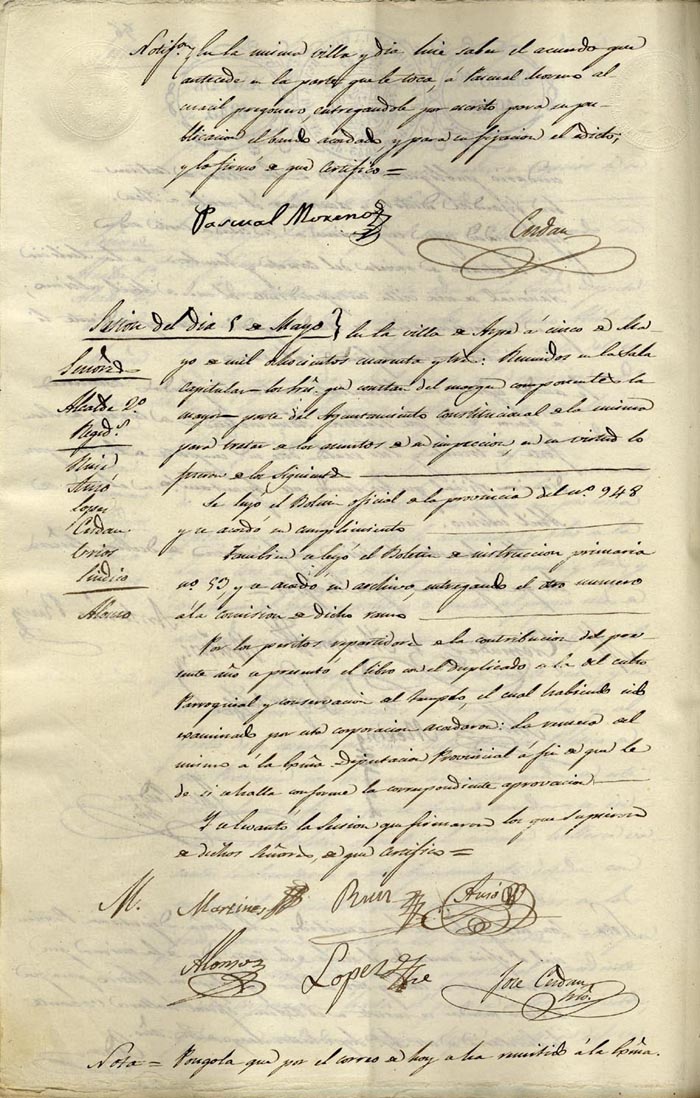 Notifon } En la misma villa y dia hice saber el acuerdo que
antecede en la parte que le toca, á Pascual Moreno al
guacil pregonero, entregandole por escrito para su pu-
blicacion el bando acordado y para su fijacion el edicto,
y lo firmó de que Certifico =
Pascual Moreno
Cerdan
Sesion del dia 5 de Mayo } En la villa de Aspe á cinco de Ma-
yo de mil ochocientos cuarenta y tres: Reunidos en la Sala
Capitular los Sres. que constan del margen componentes la
mayor parte del Ayuntamiento Constitucional de la misma
para tratar de los asuntos de su inspeccion, en su virtud lo
fueron de los siguientes
Señores
Alcalde 2º
Regids.
Ruiz
Ausó
Lopez
Cerdan
Sindico
Alonso
Se leyó el Boletin oficial de la provincia del nº. 948
y se acordó su cumplimiento
Tambien se leyó el Boletin de instruccion primaria
nº. 53 y se acordó su archivo, entregando el otro numero
á la comision de dicho ramo
Por los peritos repartidores de la contribucion del pre-
sente año se presentó el libro con el duplicado de la del culto
Parroquial y conservacion del templo, el cual habiendo sido
examinado por esta corporacion acordaron: la remesa del
mismo á la Exma. Diputacion Provincial á fin de que le
dé si se halla conforme la correspondiente aprovacion
Y se levantó la Sesion que firmaron los que supieron
de dichos Señores, de que certifico =
M. Martinez Ruiz Ausó
Alonso Lopez Jose Cerdan
Srio.
Nota = Pongola que por el correo de hoy se ha remitido á la Exma.